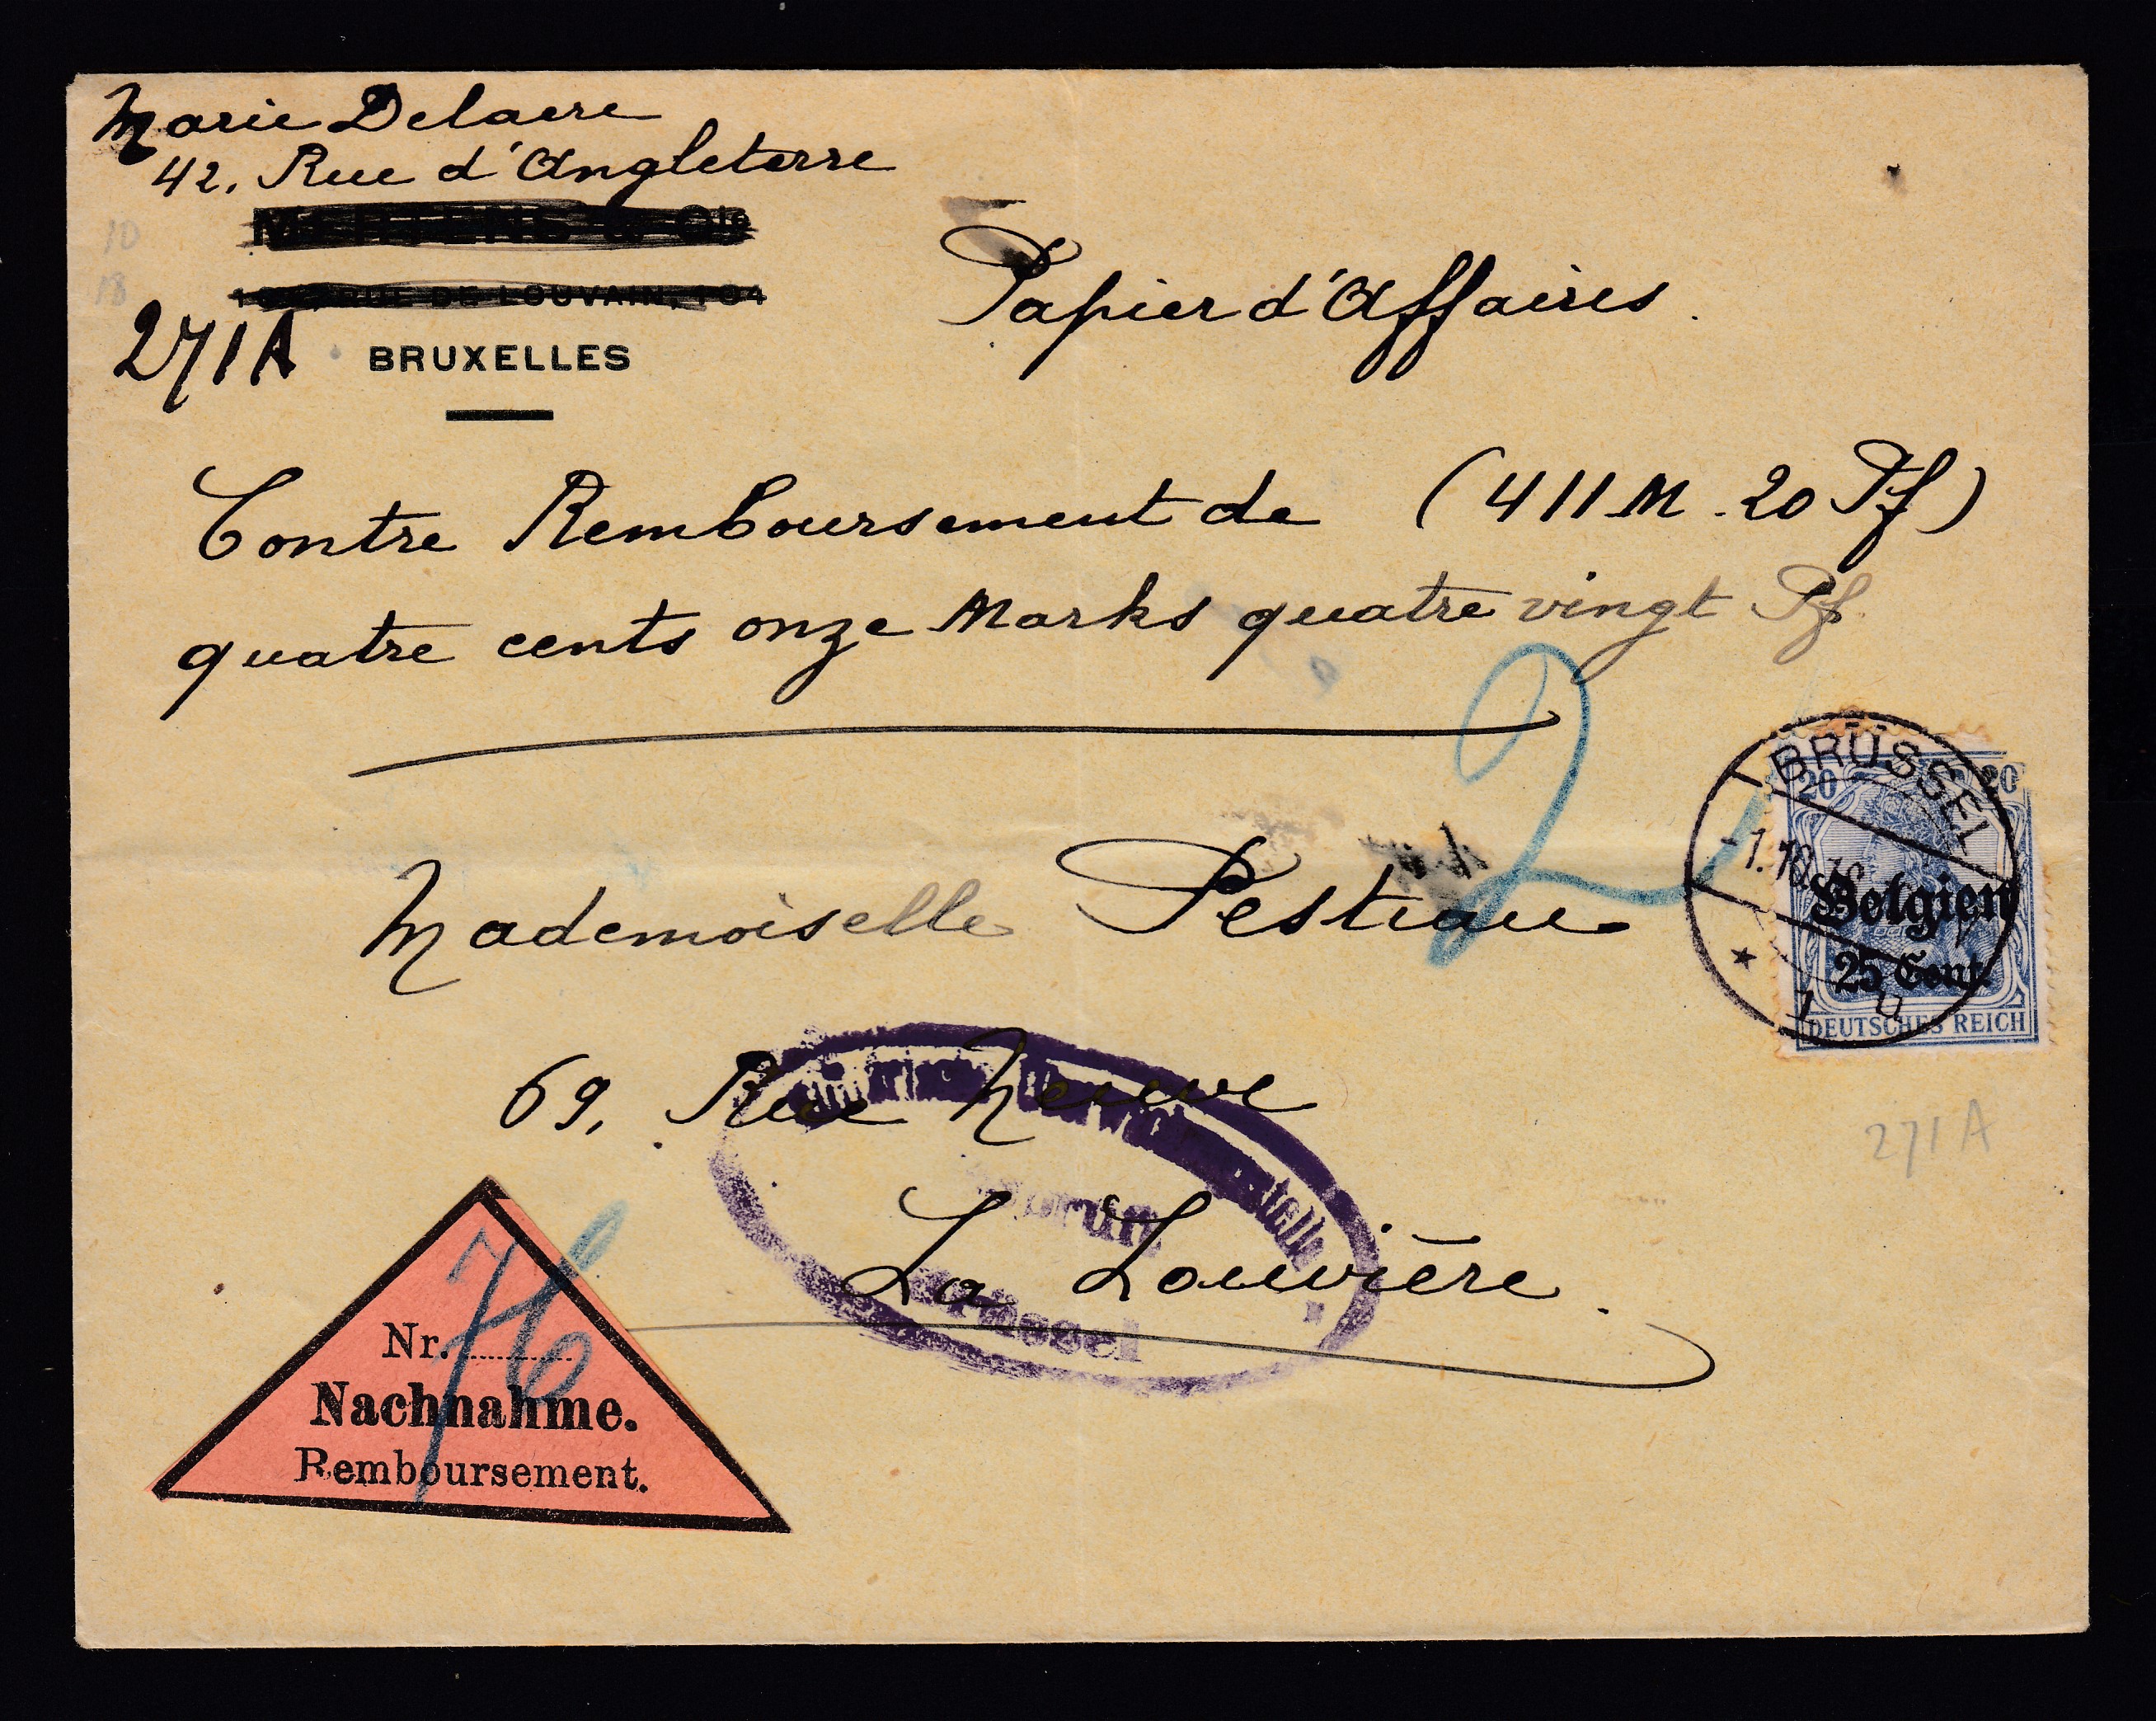 Marie Delaere
42, Rue d'Angleterre
RUE DE LOUVAIN, 104
10
18
271A
BRUXELLES
Papier d'Affaires.
Contre Remboursement de (411 M. 20 Pf)
quatre cents onze Marks quatre vingt Pf.
2
BRÜSSEL
-1.10.
* 1 U
20 20
Belgien
25 Cent.
DEUTSCHES REICH
Mademoiselle Pestiau
69, Rue Neuve
La Louvière.
271A
Nr. 76
Nachnahme.
Remboursement.